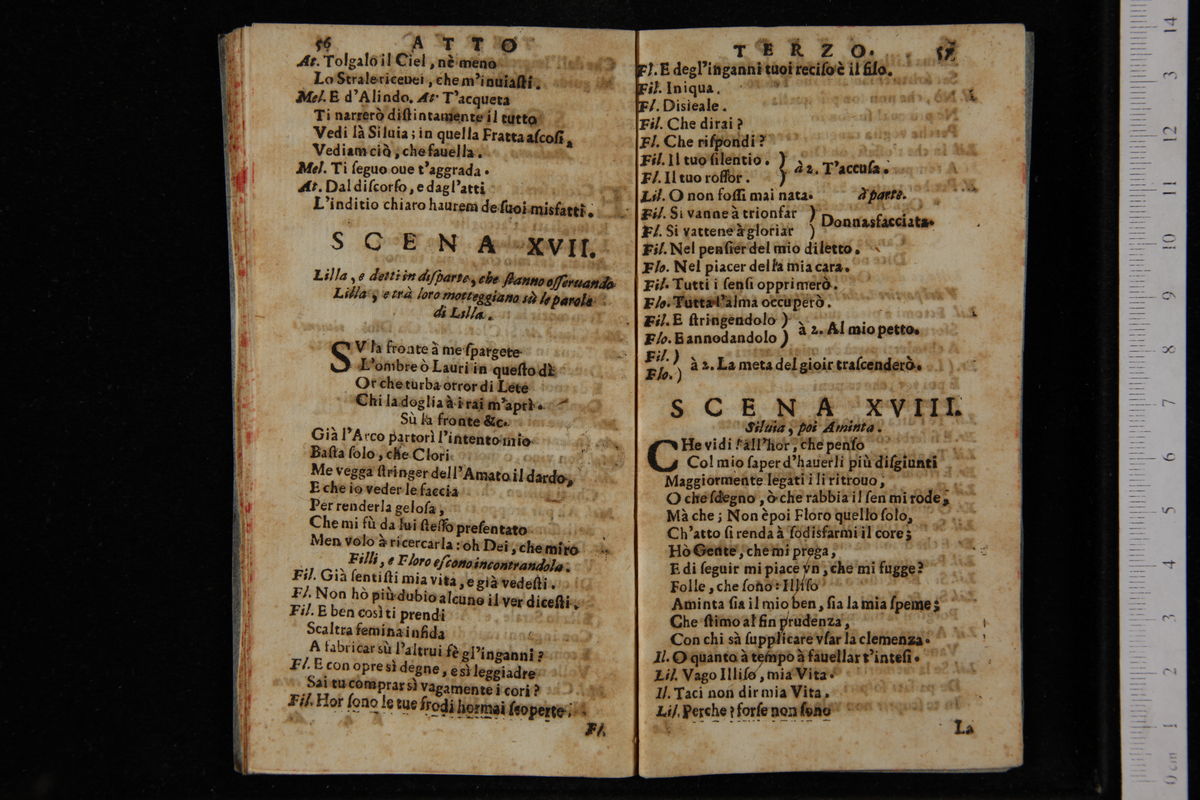 56 ATTO
At. Tolgalo il Ciel, nè meno
Lo Strale riceuei, che m'inuiaſti.
Mel. E d'Alindo. At. T'acqueta
Ti narrerò diſtintamente il tutto
Vedi là Siluia; in quella Fratta aſcoſi,
Vediam ciò, che fauella.
Mel. Ti ſeguo oue t'aggrada.
At. Dal diſcorſo, e dagl'atti
L'inditio chiaro haurem de ſuoi misfatti.
SCENA XVII.
Lilla, e detti in diſparte, che ſtanno oſſeruando
Lilla, e trà loro motteggiano sù le parole
di Lilla.
SV la fronte à me ſpargete
L'ombre ò Lauri in queſto dì
Or che turba orror di Lete
Chi la doglia à i rai m'aprì.
Sù la fronte &c.
Già l'Arco partorì l'intento mio
Baſta ſolo, che Clori
Me vegga ſtringer dell'Amato il dardo,
E che io veder le faccia
Per renderla geloſa,
Che mi fù da lui ſteſſo preſentato
Men volo à ricercarla: oh Dei, che miro
Filli, e Floro eſcono incontrandola.
Fil. Già ſentiſti mia vita, e già vedeſti.
Fl. Non hò più dubio alcuno il ver diceſti.
Fil. E ben così ti prendi
Scaltra femina infida
A fabricar sù l'altrui fè gl'inganni?
Fl. E con opre sì degne, e sì leggiadre
Sai tu comprar sì vagamente i cori?
Fil. Hor ſono le tue frodi hormai ſcoperte.
Fl.
TERZO. 57
Fl. E degl'inganni tuoi reciſo è il filo.
Fil. Iniqua.
Fl. Disleale.
Fil. Che dirai?
Fl. Che riſpondi?
Fil. Il tuo ſilentio. } à 2. T'accuſa.
Fl. Il tuo roſſor. }
Lil. O non foſſi mai nata. à parte.
Fil. Si vanne à trionfar ) Donna sfacciata.
Fl. Si vattene à gloriar )
Fil. Nel penſier del mio diletto.
Flo. Nel piacer della mia cara.
Fil. Tutti i ſenſi opprimerò.
Flo. Tutta l'alma occuperò.
Fil. E ſtringendolo ) à 2. Al mio petto.
Flo. E annodandolo )
Fil. ) à 2. La meta del gioir traſcenderò.
Flo. )
SCENA XVIII.
Siluia, poi Aminta.
CHe vidi! all'hor, che penſo
Col mio ſaper d'hauerli più diſgiunti
Maggiormente legati i li ritrouo,
O che ſdegno, ò che rabbia il ſen mi rode,
Mà che; Non è poi Floro quello ſolo,
Ch'atto ſi renda à ſodisfarmi il core;
Hò Gente, che mi prega,
E di ſeguir mi piace vn, che mi fugge?
Folle, che ſono: Illiſo
Aminta ſia il mio ben, ſia la mia ſpeme;
Che ſtimo al fin prudenza,
Con chi sà ſupplicare vſar la clemenza.
Il. O quanto à tempo à fauellar t'inteſi.
Lil. Vago Illiſo, mia Vita.
Il. Taci non dir mia Vita.
Lil. Perche? forſe non ſono
La